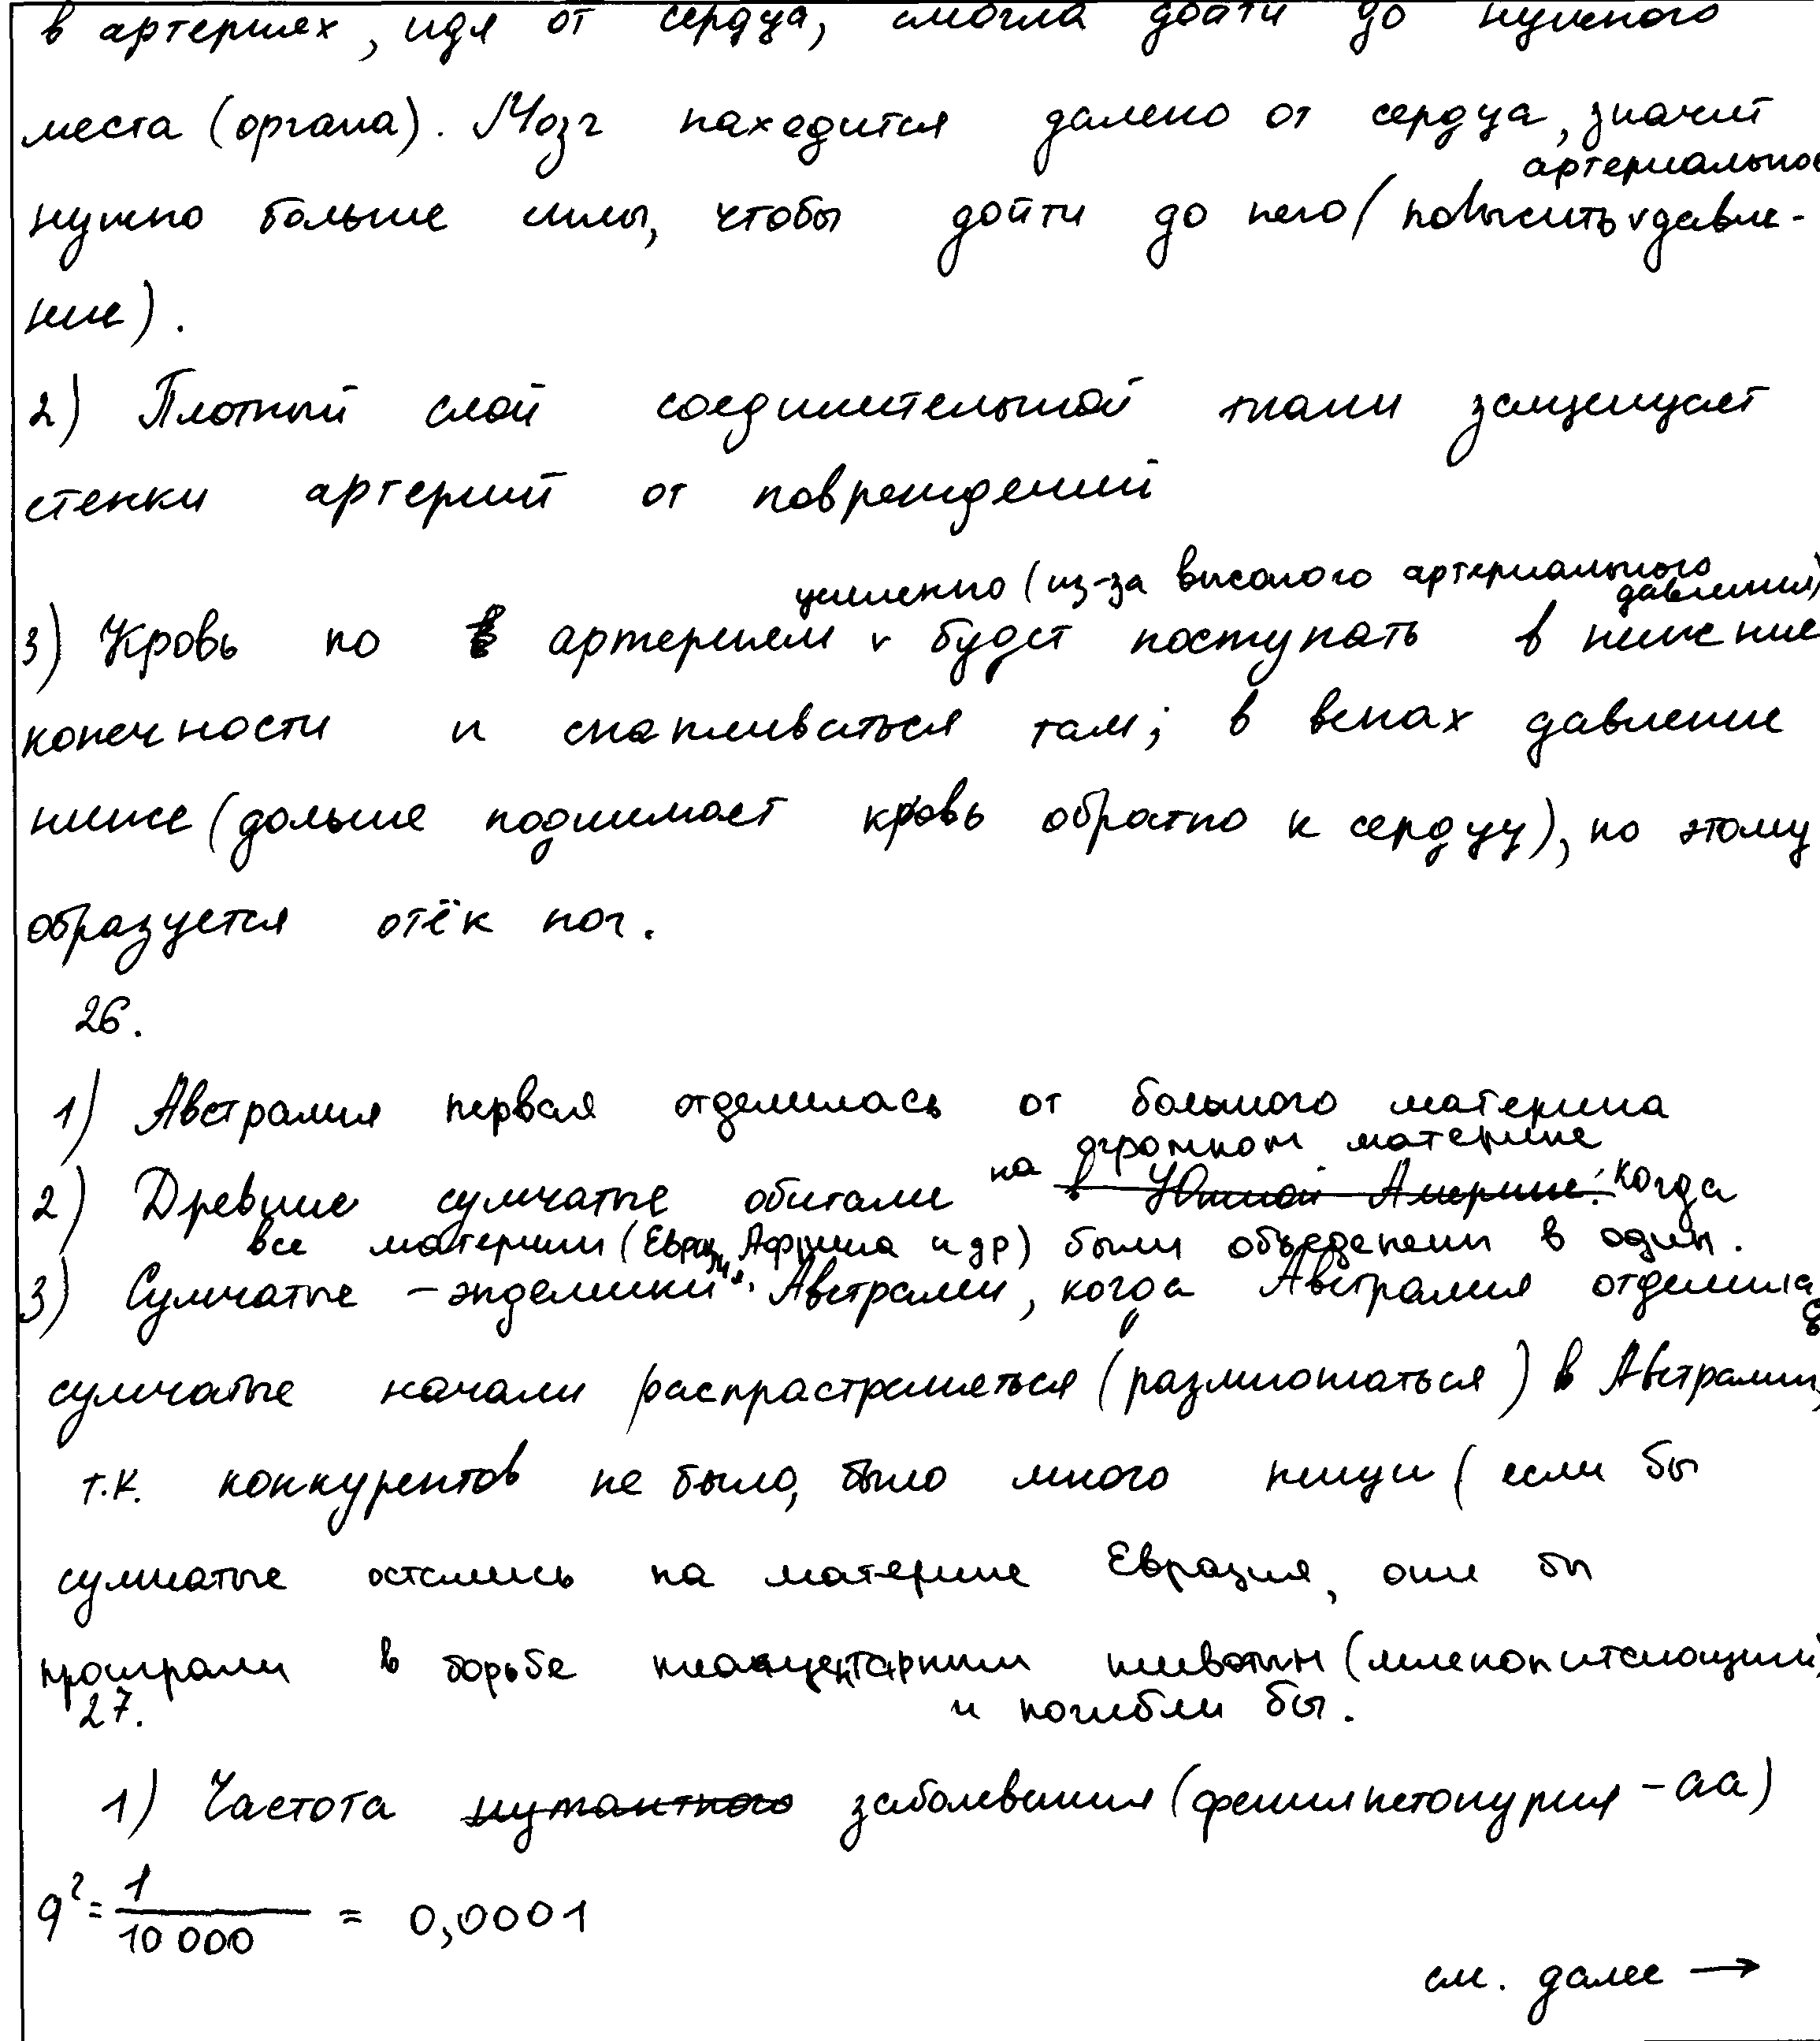 в артериях, идя от сердца, смогла дойти до нужного
места (органа). Мозг находится далеко от сердца, значит
артериальное
нужно больше силы, чтобы дойти до него (повысить v давле-
ние).
2) Плотный слой соединительной ткани защищает
стенки артерий от повреждений
усиленно (из-за высокого артериального
давления)
3) Кровь по артериям v будет поступать в нижние
конечности и скапливаться там; в венах давление
ниже (дольше поднимает кровь обратно к сердцу), по этому
образуется отёк ног.
26.
1) Австралия первая отделилась от большого материка
огромном материке
2) Древние сумчатые обитали на в Южной Америке. когда
все материки (Евразия, Африка и др) были объеденены в один.
3) Сумчатые - эндемики Австралии, когда Австралия отделилась
сумчатые начали распрастраняться (размножаться) в Австралии,
т.к. конкурентов не было, было много пищи (если бы
сумчатые остались на материке Евразия, они бы
проиграли в борьбе плацентарным животн (млекопитающим)
и погибли бы.
27.
1) Частота мутантного заболевания (фенилкетонурия - аа)
q² = 1/10 000 = 0,0001
см. далее →